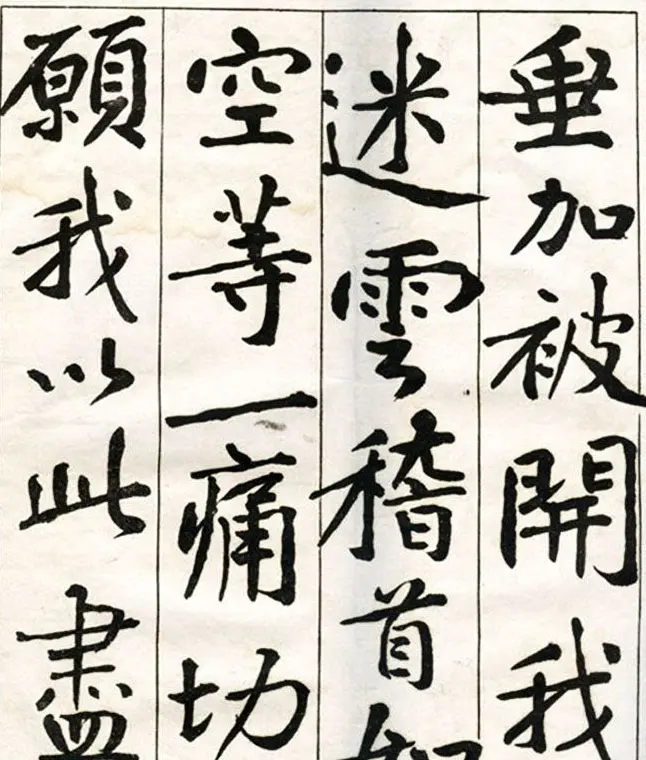 垂加被開我
迷雲稽首
空等一痛切
願我以此盡